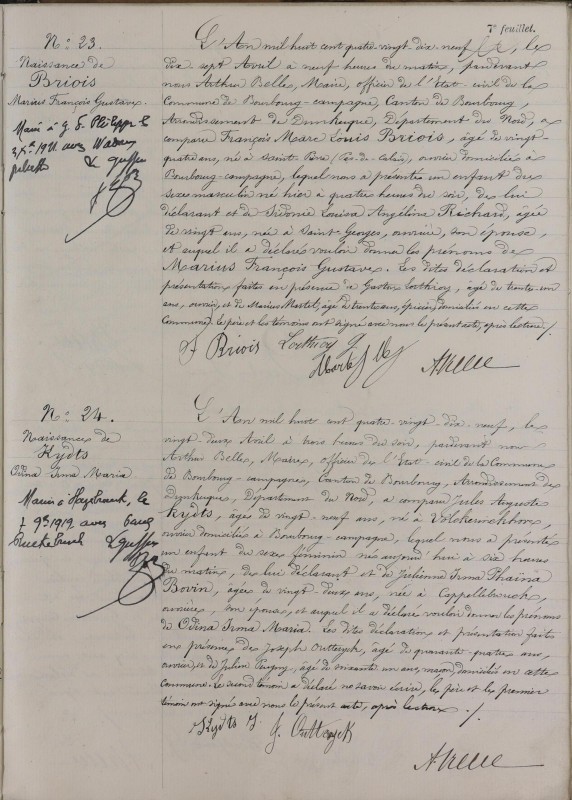 7e feuillet.
No: 23.
Naissance de
Briois
Marius François Gustave.
Marié à G. S. Philippe le
1921 avec
Le greffier
L'An mil huit cent quatre-vingt-dix-neuf, le
dix sept Avril à neuf heures du matin, pardevant
nous Arthur Belle, Maire, officier de l'Etat-civil de la
Commune de Bourbourg-campagne, Canton de Bourbourg,
Arrondissement de Dunkerque, Département du Nord, a
comparu François Marc Louis Briois, âgé de vingt-
quatre ans, né à Saint (Pas-de-Calais), ouvrier domicilié à
Bourbourg-campagne, lequel nous a présenté un enfant du
sexe masculin né hier à quatre heures du soir, de lui
déclarant et de Sidonie Louisa Angéline Richard, âgée
de vingt ans, née à Saint-Georges, ouvrière, son épouse,
et auquel il a déclaré vouloir donner les prénoms de
Marius François Gustave. Les dites déclaration et
présentation faites en présence de Gaston Lorthioy, âgé de trente-un
ans, ouvrier, et de Marius Martel, âgé de trente ans, épicier, domiciliés en cette
Commune, le père et les témoins ont signé avec nous le présent acte, après lecture./.
F Briois Lorthioy G
Martel M
A Belle
No: 24.
Naissance de
Kydts
Odina Irma Maria
Marié à Hazebrouck, le
7 9bre 1919 avec
Le greffier
L'An mil huit cent quatre-vingt-dix-neuf, le
vingt-deux Avril à trois heures du soir, pardevant nous
Arthur Belle, Maire, officier de l'Etat-civil de la Commune
de Bourbourg-campagne, Canton de Bourbourg, Arrondissement de
Dunkerque, Département du Nord, a comparu Jules Auguste
Kydts, âgé de vingt-neuf ans, né à Volckerinckhove,
ouvrier domicilié à Bourbourg-campagne, lequel nous a présenté
un enfant du sexe féminin née aujourd'hui à six heures
du matin, de lui déclarant et de Julienne Irma Phaina
Bovin, âgée de vingt-deux ans, née à Cappellebrouck,
ouvrière, son épouse, et auquel il a déclaré vouloir donner les prénoms
de Odina Irma Maria. Les dites déclaration et présentation faites
en présence de Joseph Outteryck, âgé de quarante-quatre ans,
ouvrier, et de Julien âgé de soixante un ans, maçon, domiciliés en cette
Commune. Le second témoin a déclaré ne savoir écrire, le père et le premier
témoin ont signé avec nous le présent acte, après lecture ./.
Kydts J. J. Outteryck
A Belle